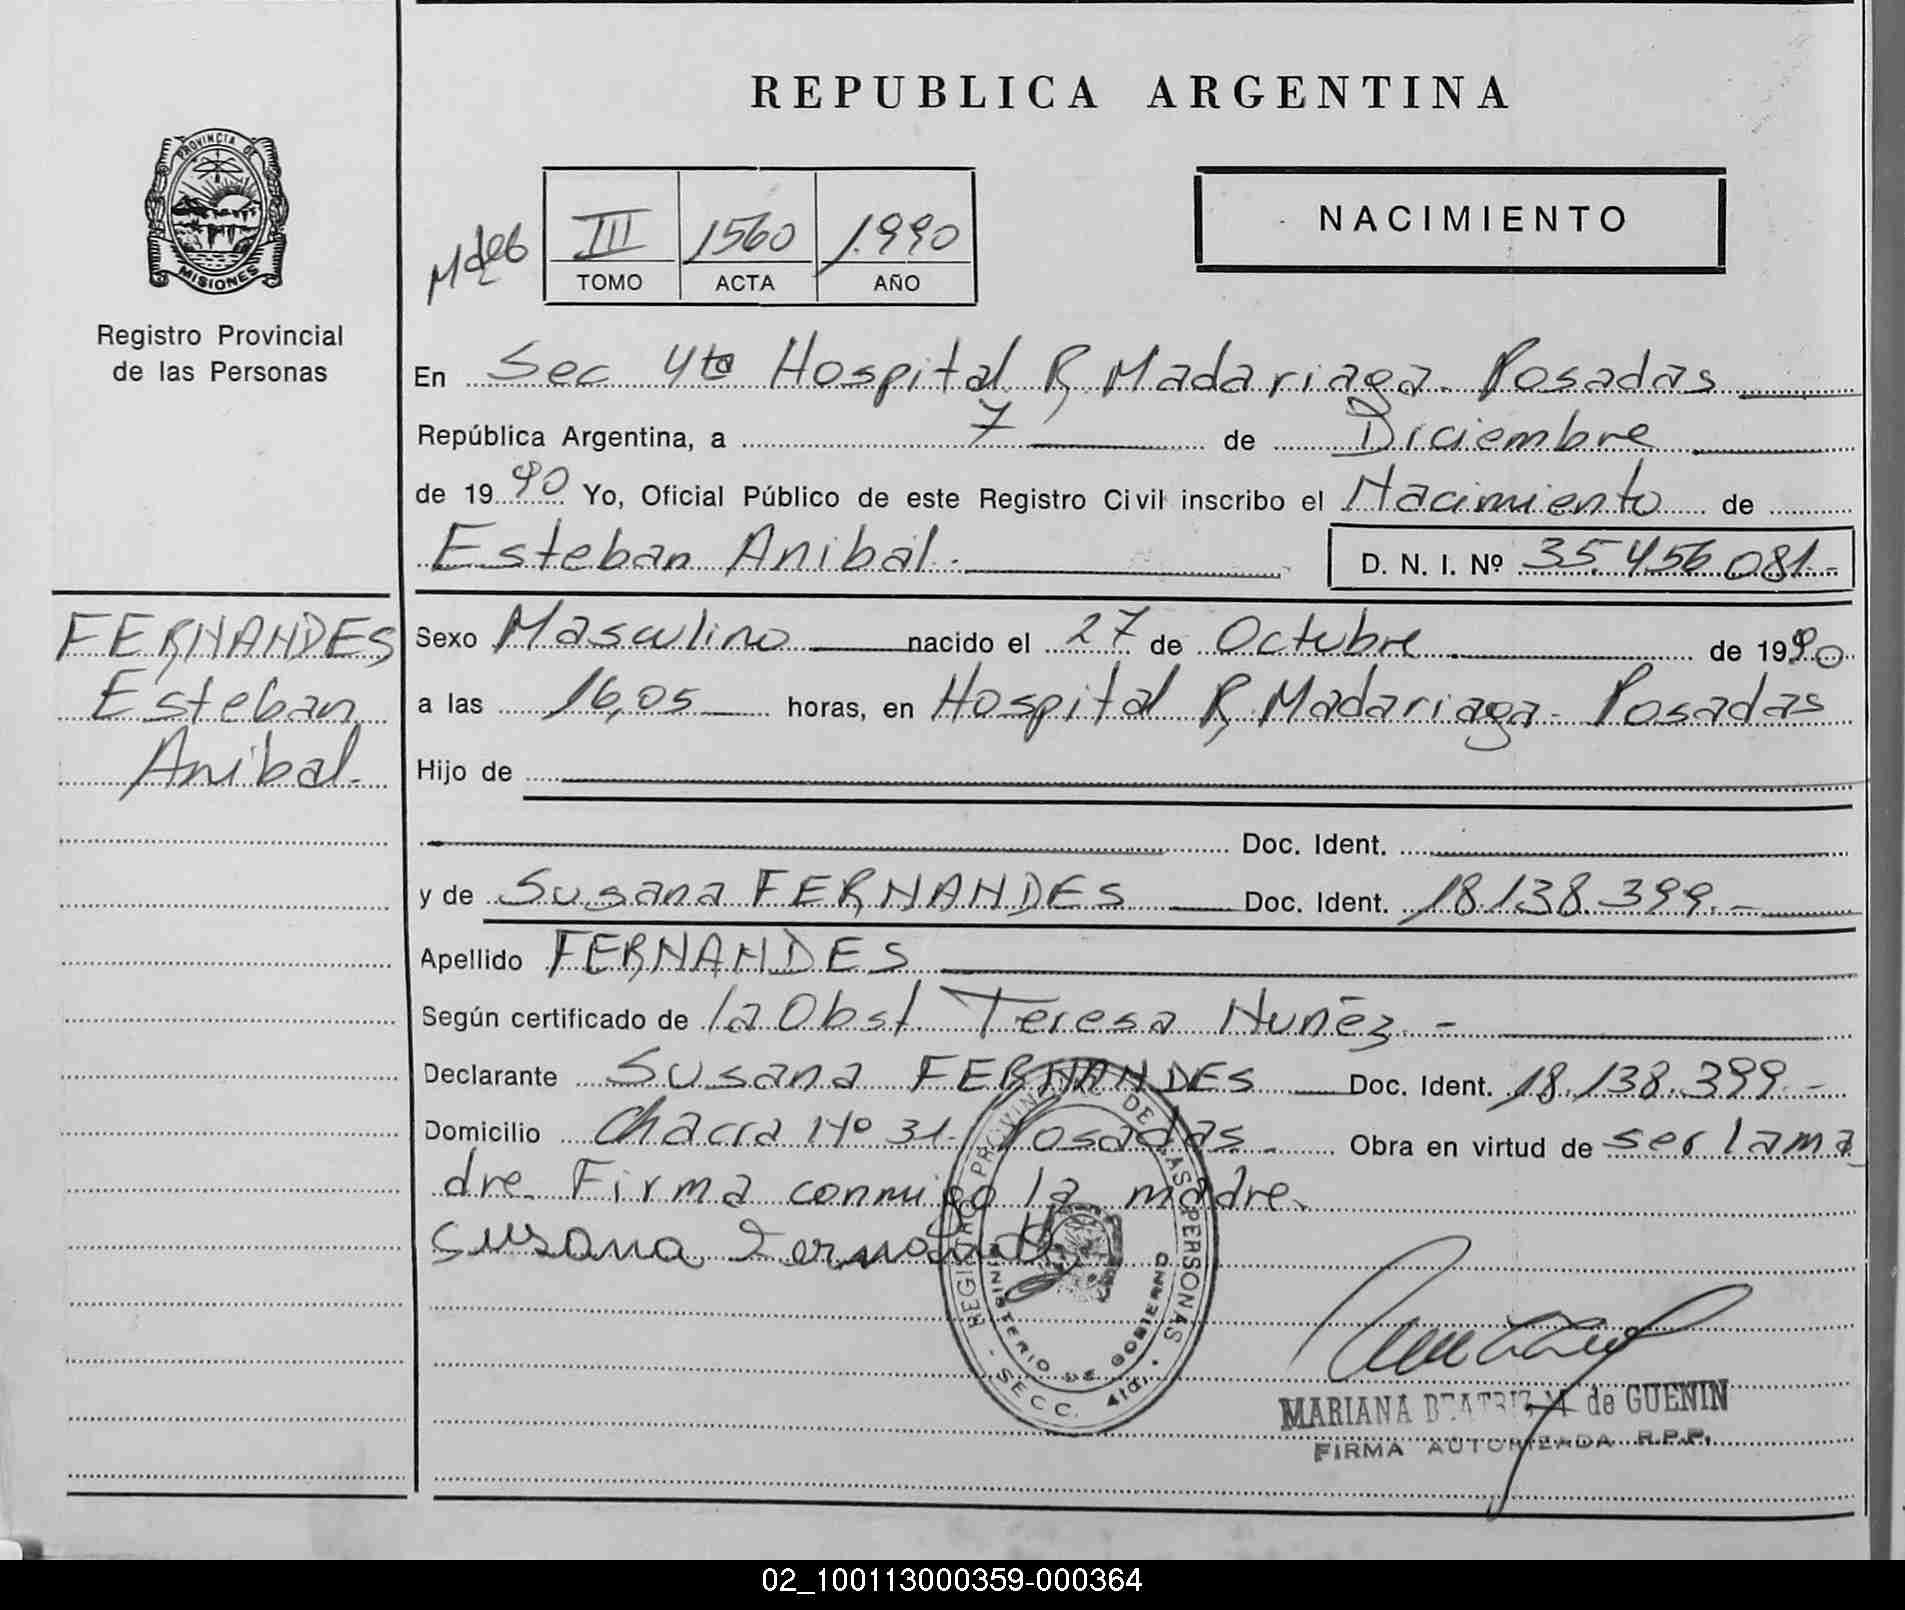 REPUBLICA ARGENTINA
PROVINCIA DE
MISIONES
Registro Provincial
de las Personas
NACIMIENTO
III 1560 1.990
TOMO ACTA AÑO
En Sec 4ta Hospital R, Madariaga. Posadas
República Argentina, a 7 de Diciembre
de 1990 Yo, Oficial Público de este Registro Civil inscribo el Nacimiento de
Esteban Anibal. D. N. I. Nº 35.456.081.-
FERNANDES
Esteban
Anibal.
Sexo Masculino nacido el 27 de Octubre de 1990
a las 16,05 horas, en Hospital R, Madariaga- Posadas
Hijo de
Doc. Ident.
y de Susana FERNANDES Doc. Ident. 18.138.399.-
Apellido FERNANDES
Según certificado de la Obst. Teresa Nuñez.-
Declarante Susana FERNANDES Doc. Ident. 18.138.399.-
Domicilio Chacra Nº 31. Posadas.- Obra en virtud de ser la ma
dre. Firma conmigo la madre.
Susana
REGISTRO PROVINCIAL DE LAS PERSONAS
MINISTERIO DE GOBIERNO
- SECC. 4ta. -
MARIANA BEATRIZ M de GUENIN
FIRMA AUTORIZADA R.P.P.
02_100113000359-000364